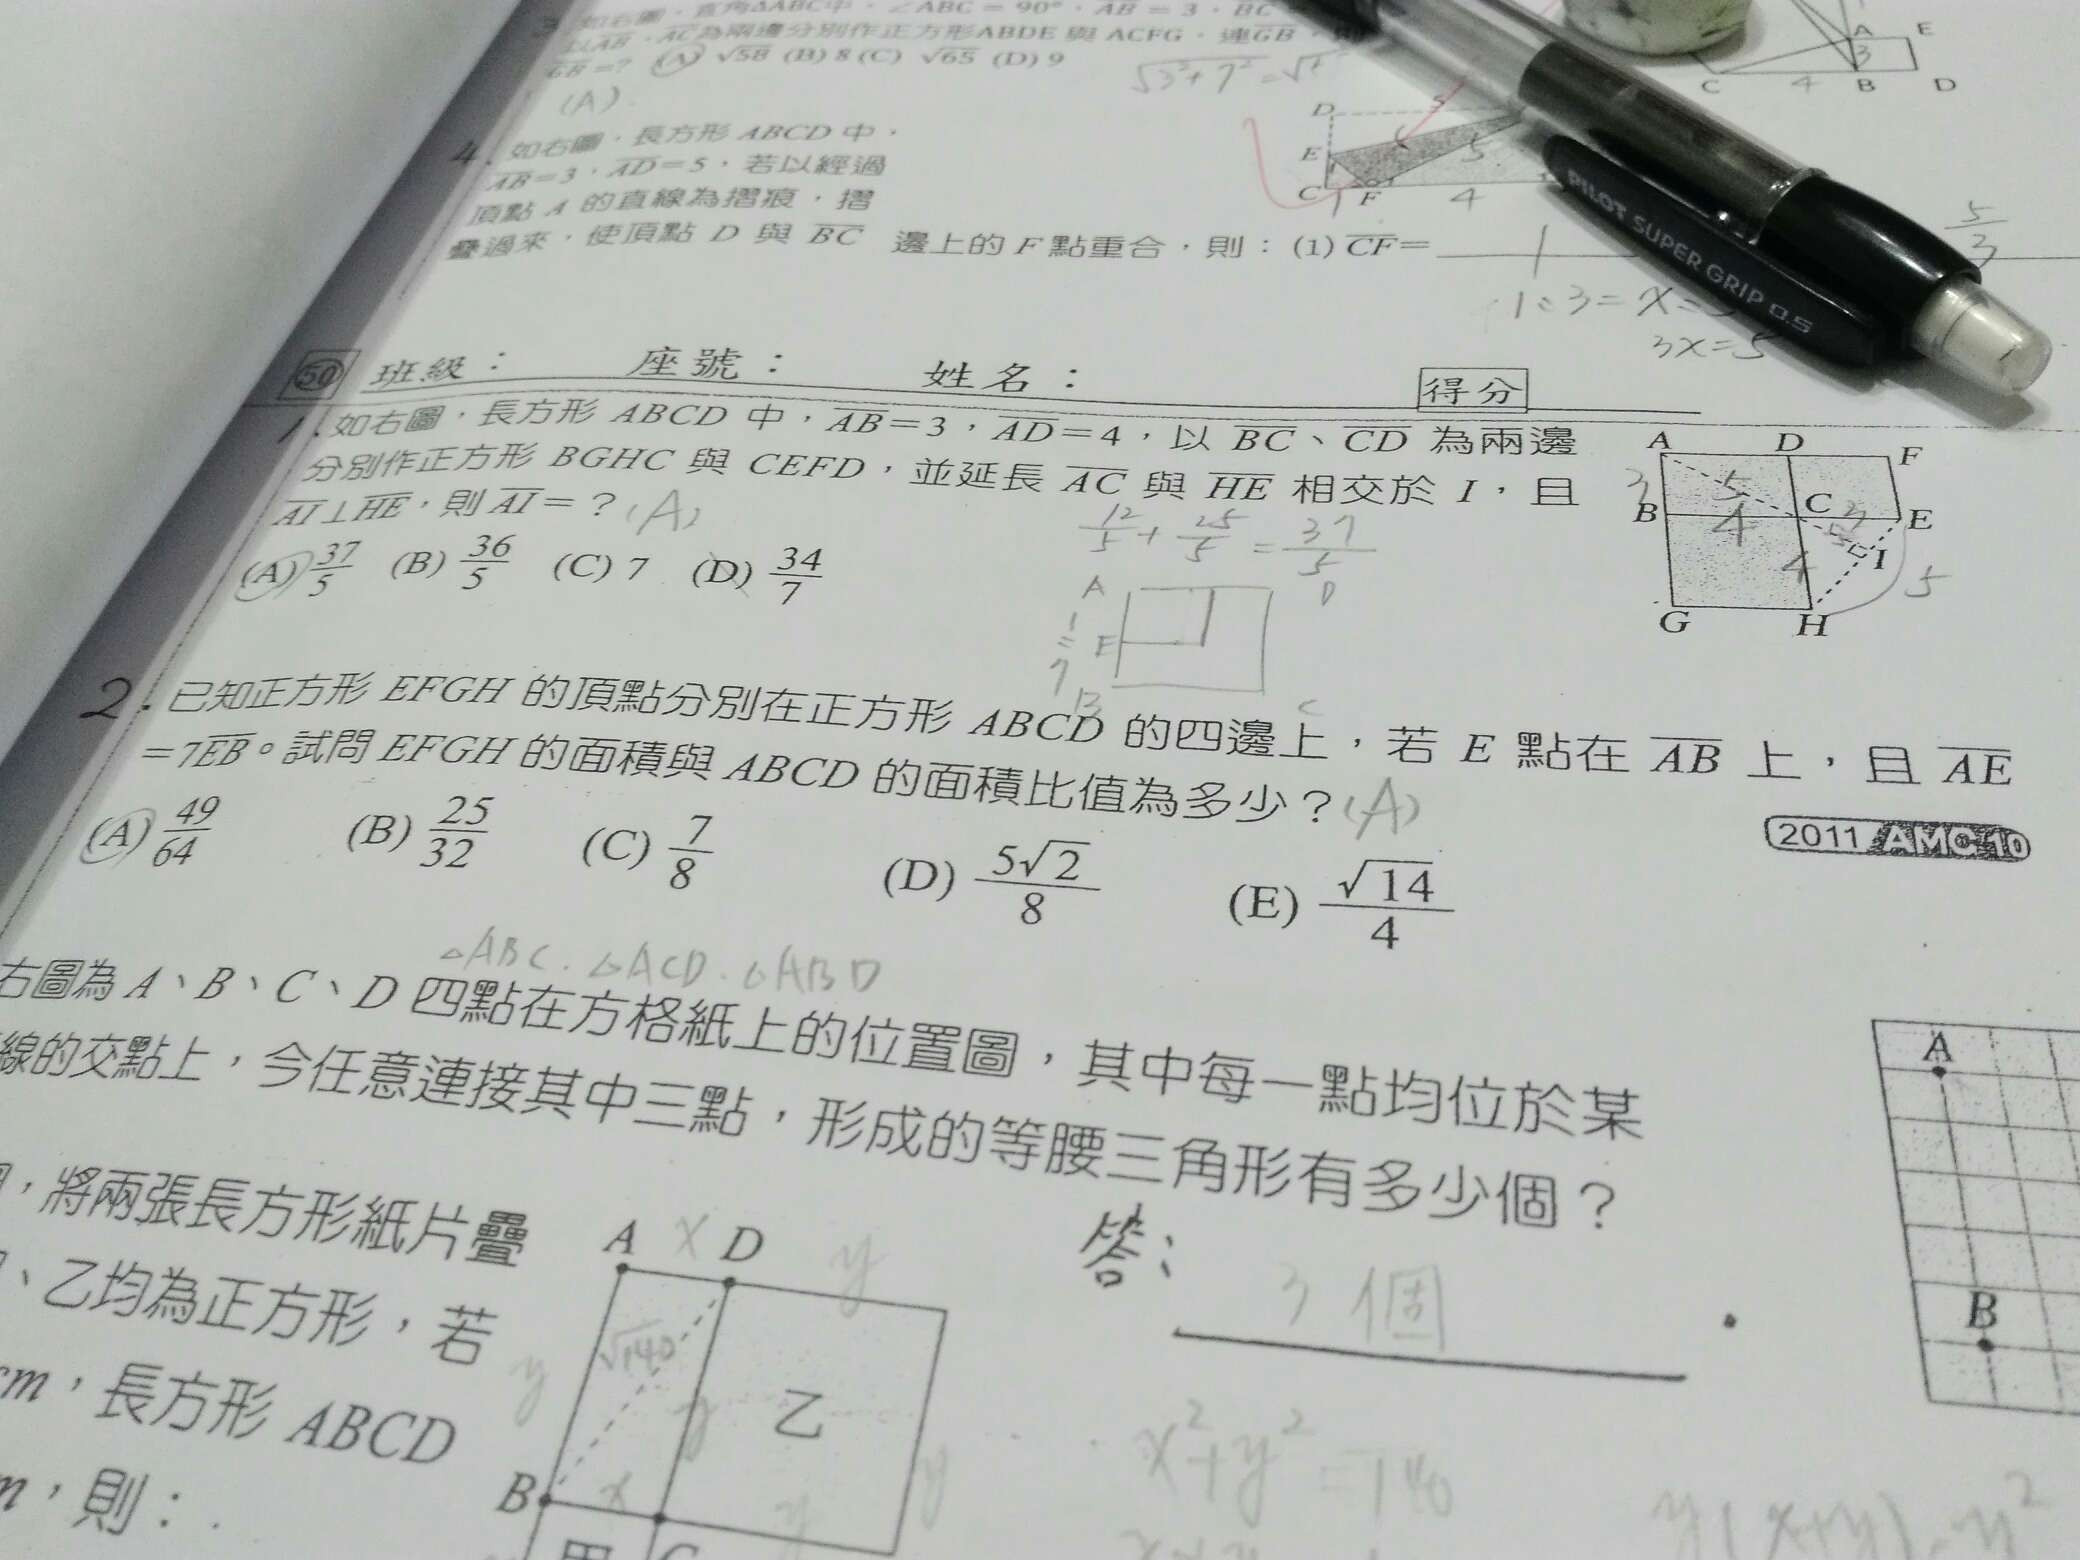 3. 如右圖，直角△ABC中，∠ABC = 90°，AB = 3，BC
以AB、AC為兩邊分別作正方形ABDE 與 ACFG，連GB，則
GB =? (A) √58 (B) 8 (C) √65 (D) 9
√3²+7²=√
(A)
A E
3
C 4 B D
4. 如右圖，長方形 ABCD 中，
AB=3，AD=5，若以經過
頂點 A 的直線為摺痕，摺
疊過來，使頂點 D 與 BC 邊上的 F 點重合，則：(1) CF= 1
D 5
E 5
C 1 F 4
5/3
1:3=x=5
3x=5
PILOT SUPER GRIP 0.5
50 班級： 座號： 姓名： 得分
1. 如右圖，長方形 ABCD 中，AB=3，AD=4，以 BC、CD 為兩邊
分別作正方形 BGHC 與 CEFD，並延長 AC 與 HE 相交於 I，且
AI⊥HE，則 AI=？(A)
(A) 37/5 (B) 36/5 (C) 7 (D) 34/7
12/5 + 25/5 = 37/5
A D F
3 5
B 4 C 3 E
4 I 5
G H
A D
1
=
7 E
B C
2. 已知正方形 EFGH 的頂點分別在正方形 ABCD 的四邊上，若 E 點在 AB 上，且 AE
=7EB。試問 EFGH 的面積與 ABCD 的面積比值為多少？(A)
(A) 49/64 (B) 25/32 (C) 7/8 (D) 5√2/8 (E) √14/4
2011 AMC 10
△ABC．△ACD．△ABD
右圖為 A、B、C、D 四點在方格紙上的位置圖，其中每一點均位於某
線的交點上，今任意連接其中三點，形成的等腰三角形有多少個？
答：3 個
A
B
，將兩張長方形紙片疊
、乙均為正方形，若
cm，長方形 ABCD
，則：
A x D y
y √140 y 乙 y
B x y
甲 C
x²+y²=140
y(x+y)-y²